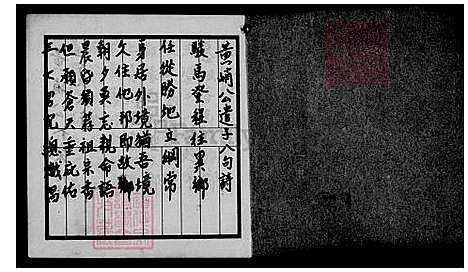 黃峭公遣子八句詩
駿馬登程往異鄉
任從勝地立綱常
身居外境猶吾境
久住他邦即故鄉
朝夕莫忘親命語
晨昏須薦祖宗香
但願蒼天垂庇佑
三七男兒總熾昌